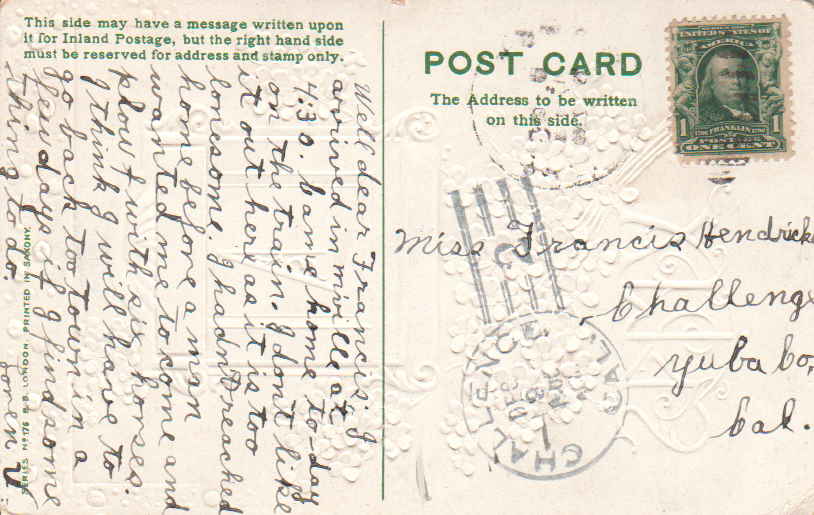 This side may have a message written upon
it for Inland Postage, but the right hand side
must be reserved for address and stamp only.
Well dear Francis. I
arrived in m'ville at
4:30. came home to-day
on the train. I dont like
it out here as it is too
lonesome. I hadn't reached
home before a man
wanted me to come and
plow with six horses.
I think I will have to
go back too Town in a
few days if I find some
thing to do.
SERIES No 176 B.B. LONDON. PRINTED IN SAXONY.
POST CARD
The Address to be written
on this side.
UNITED STATES OF
AMERICA
1 FRANKLIN 1
POSTAGE
ONE CENT
Miss Francis Hendricks
Challenge
Yuba Co,
Cal.
CHALLENGE
DEC
CAL.